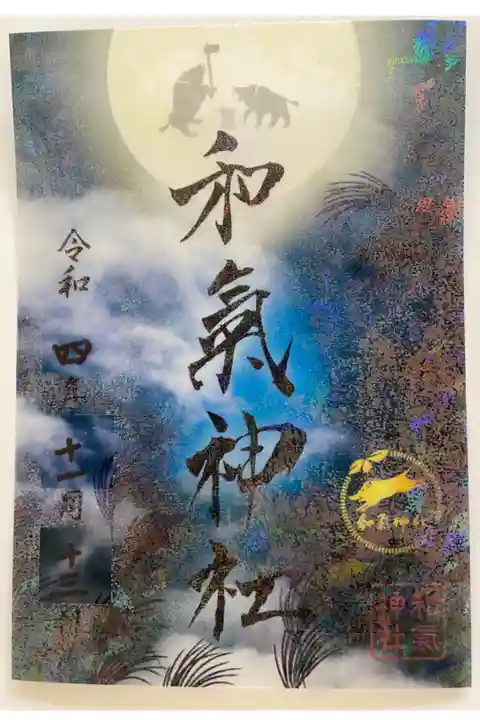 和氣神社
令和四年十一月十三日
和気神社
和氣
神社